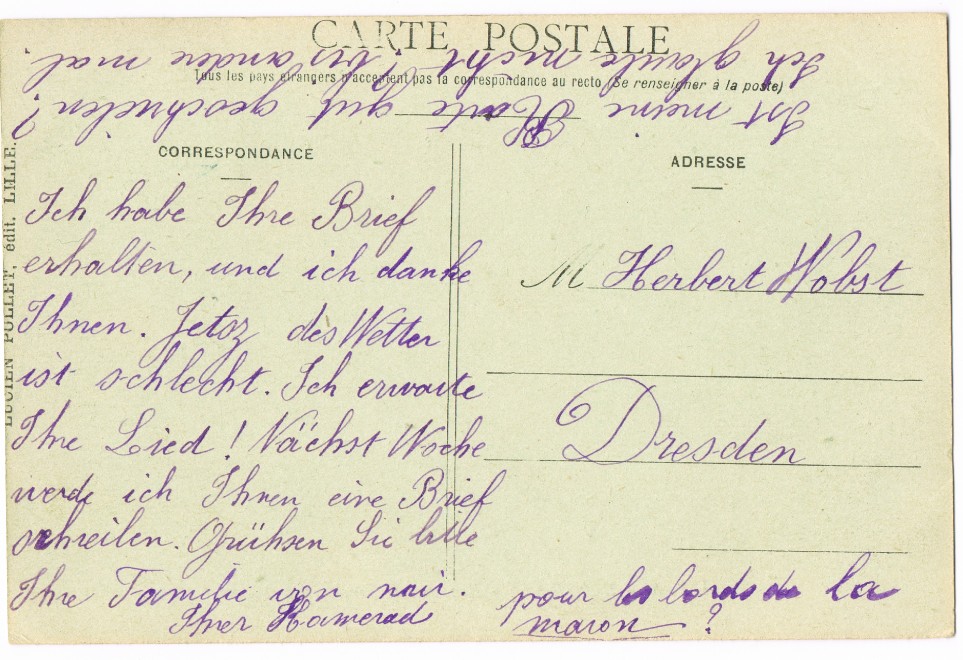 CARTE POSTALE
Tous les pays étrangers n'acceptent pas la correspondance au recto (Se renseigner à la poste)
CORRESPONDANCE
Ich habe Ihre Brief
erhalten, und ich danke
Ihnen. Jetoz des Wetter
ist schlecht. Ich erwarte
Ihre Lied! Nächst Woche
werde ich Ihnen eine Brief
schreiben. Grühsen Sie bitte
Ihre Familie von mir.
Ihrer Kamerad
Ist meine Karte gut geschrieben?
Ich glaube nicht, andere mal
ADRESSE
M Herbert Wobst
Dresden
pour les bords de la
maron?
LUCIEN POLLET, édit. LILLE.